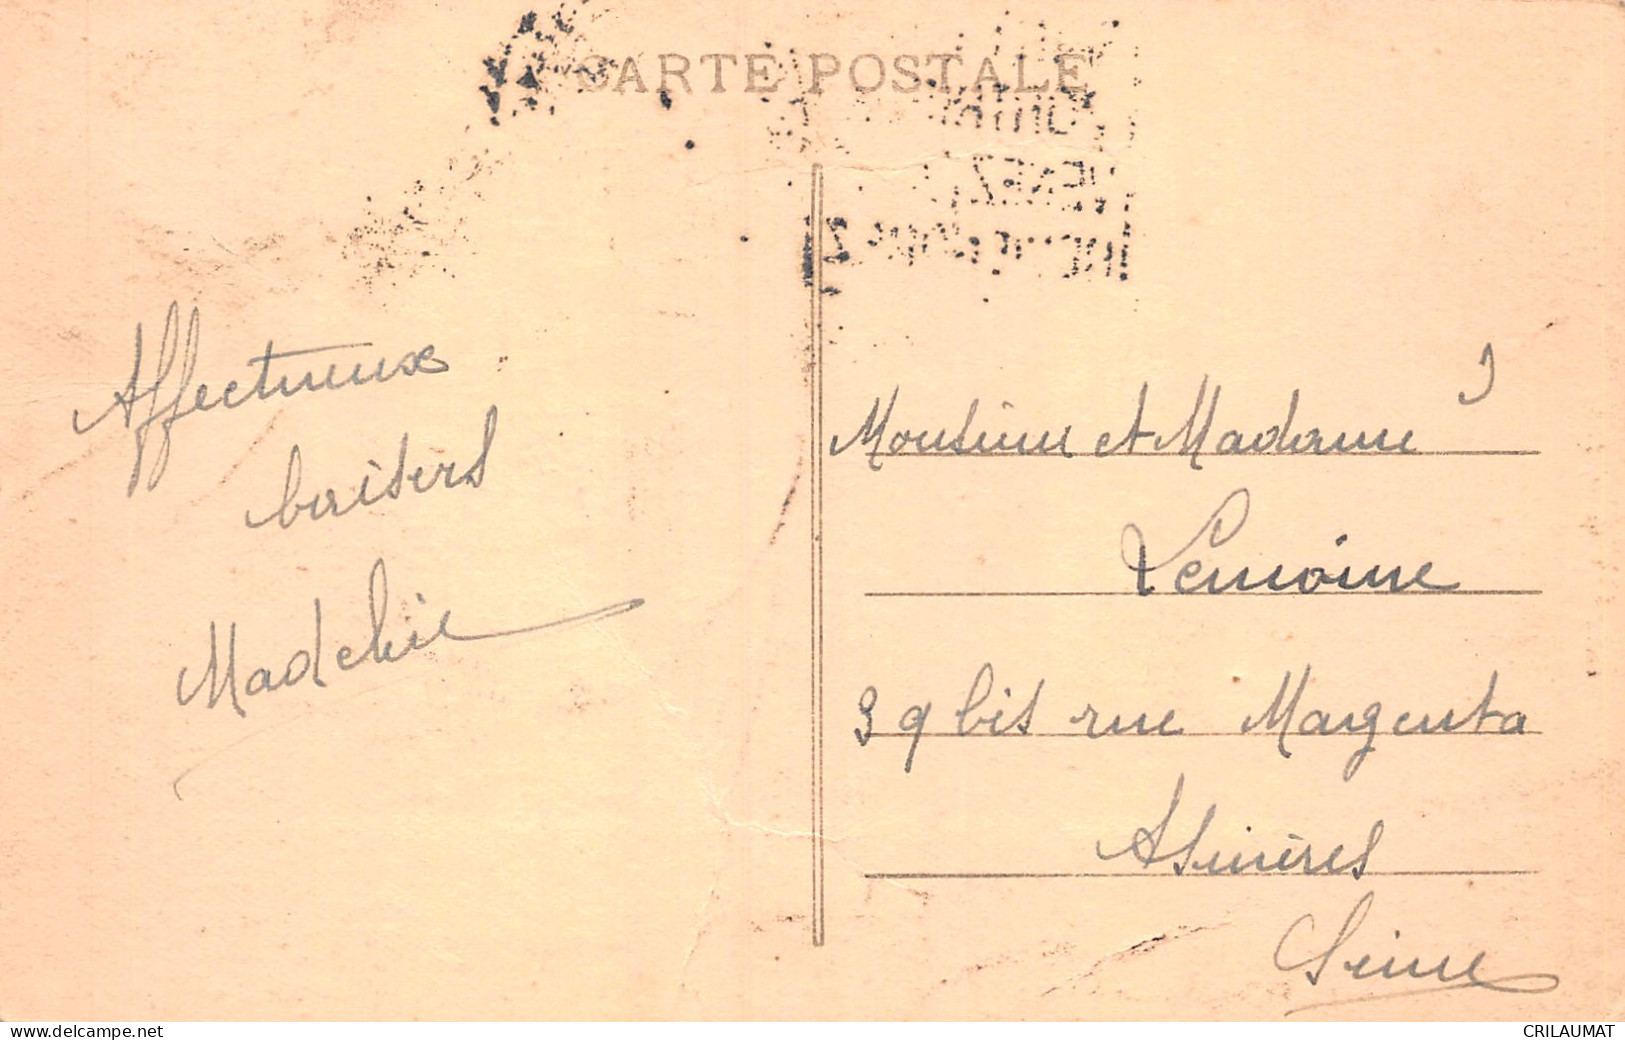 CARTE POSTALE
Affectueux
baisers
Monsieur et Madame
Lemoine
39 bis rue Magenta
Asnières
Seine
delcampe.net
CRILAUMAT